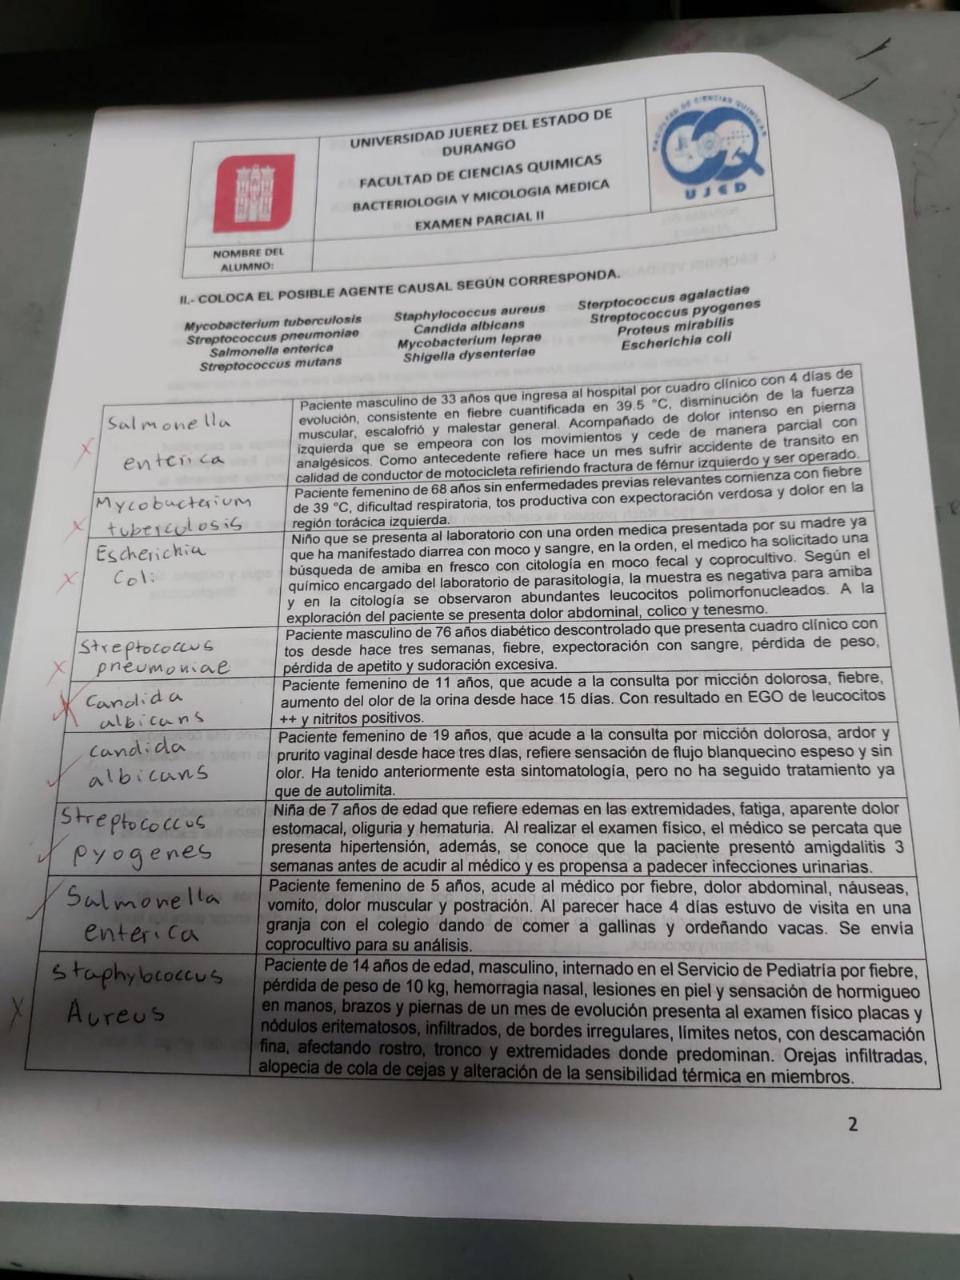 UNIVERSIDAD JUEREZ DEL ESTADO DE
DURANGO
FACULTAD DE CIENCIAS QUIMICAS
BACTERIOLOGIA Y MICOLOGIA MEDICA
EXAMEN PARCIAL II
FACULTAD DE CIENCIAS QUIMICAS
UJED
NOMBRE DEL
ALUMNO:
II.- COLOCA EL POSIBLE AGENTE CAUSAL SEGÚN CORRESPONDA.
Mycobacterium tuberculosis
Streptococcus pneumoniae
Salmonella enterica
Streptococcus mutans
Staphylococcus aureus
Candida albicans
Mycobacterium leprae
Shigella dysenteriae
Sterptococcus agalactiae
Streptococcus pyogenes
Proteus mirabilis
Escherichia coli
Salmonella
enterica
Paciente masculino de 33 años que ingresa al hospital por cuadro clínico con 4 días de
evolución, consistente en fiebre cuantificada en 39.5 °C, disminución de la fuerza
muscular, escalofrió y malestar general. Acompañado de dolor intenso en pierna
izquierda que se empeora con los movimientos y cede de manera parcial con
analgésicos. Como antecedente refiere hace un mes sufrir accidente de transito en
calidad de conductor de motocicleta refiriendo fractura de fémur izquierdo y ser operado.
Mycobacterium
tuberculosis
Paciente femenino de 68 años sin enfermedades previas relevantes comienza con fiebre
de 39 °C, dificultad respiratoria, tos productiva con expectoración verdosa y dolor en la
región torácica izquierda.
Escherichia
Coli
Niño que se presenta al laboratorio con una orden medica presentada por su madre ya
que ha manifestado diarrea con moco y sangre, en la orden, el medico ha solicitado una
búsqueda de amiba en fresco con citología en moco fecal y coprocultivo. Según el
químico encargado del laboratorio de parasitología, la muestra es negativa para amiba
y en la citología se observaron abundantes leucocitos polimorfonucleados. A la
exploración del paciente se presenta dolor abdominal, colico y tenesmo.
Streptococcus
pneumoniae
Paciente masculino de 76 años diabético descontrolado que presenta cuadro clínico con
tos desde hace tres semanas, fiebre, expectoración con sangre, pérdida de peso,
pérdida de apetito y sudoración excesiva.
Candida
albicans
Paciente femenino de 11 años, que acude a la consulta por micción dolorosa, fiebre,
aumento del olor de la orina desde hace 15 días. Con resultado en EGO de leucocitos
++ y nitritos positivos.
Candida
albicans
Paciente femenino de 19 años, que acude a la consulta por micción dolorosa, ardor y
prurito vaginal desde hace tres días, refiere sensación de flujo blanquecino espeso y sin
olor. Ha tenido anteriormente esta sintomatología, pero no ha seguido tratamiento ya
que de autolimita.
Streptococcus
pyogenes
Niña de 7 años de edad que refiere edemas en las extremidades, fatiga, aparente dolor
estomacal, oliguria y hematuria. Al realizar el examen físico, el médico se percata que
presenta hipertensión, además, se conoce que la paciente presentó amigdalitis 3
semanas antes de acudir al médico y es propensa a padecer infecciones urinarias.
Salmonella
enterica
Paciente femenino de 5 años, acude al médico por fiebre, dolor abdominal, náuseas,
vomito, dolor muscular y postración. Al parecer hace 4 días estuvo de visita en una
granja con el colegio dando de comer a gallinas y ordeñando vacas. Se envía
coprocultivo para su análisis.
Staphylococcus
Aureus
Paciente de 14 años de edad, masculino, internado en el Servicio de Pediatría por fiebre,
pérdida de peso de 10 kg, hemorragia nasal, lesiones en piel y sensación de hormigueo
en manos, brazos y piernas de un mes de evolución presenta al examen físico placas y
nódulos eritematosos, infiltrados, de bordes irregulares, límites netos, con descamación
fina, afectando rostro, tronco y extremidades donde predominan. Orejas infiltradas,
alopecia de cola de cejas y alteración de la sensibilidad térmica en miembros.
2